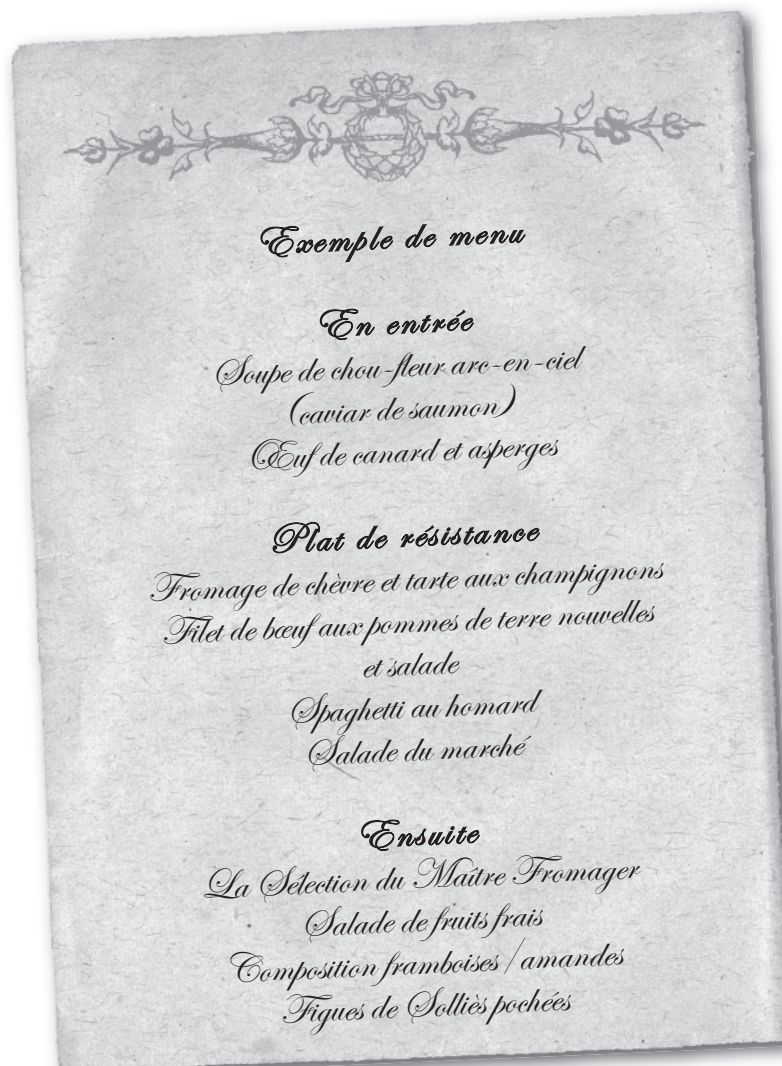 Exemple de menu
En entrée
Soupe de chou-fleur arc-en-ciel
(caviar de saumon)
Œuf de canard et asperges
Plat de résistance
Fromage de chèvre et tarte aux champignons
Filet de bœuf aux pommes de terre nouvelles
et salade
Spaghetti au homard
Salade du marché
Ensuite
La Sélection du Maître Fromager
Salade de fruits frais
Composition framboises / amandes
Figues de Solliès pochées